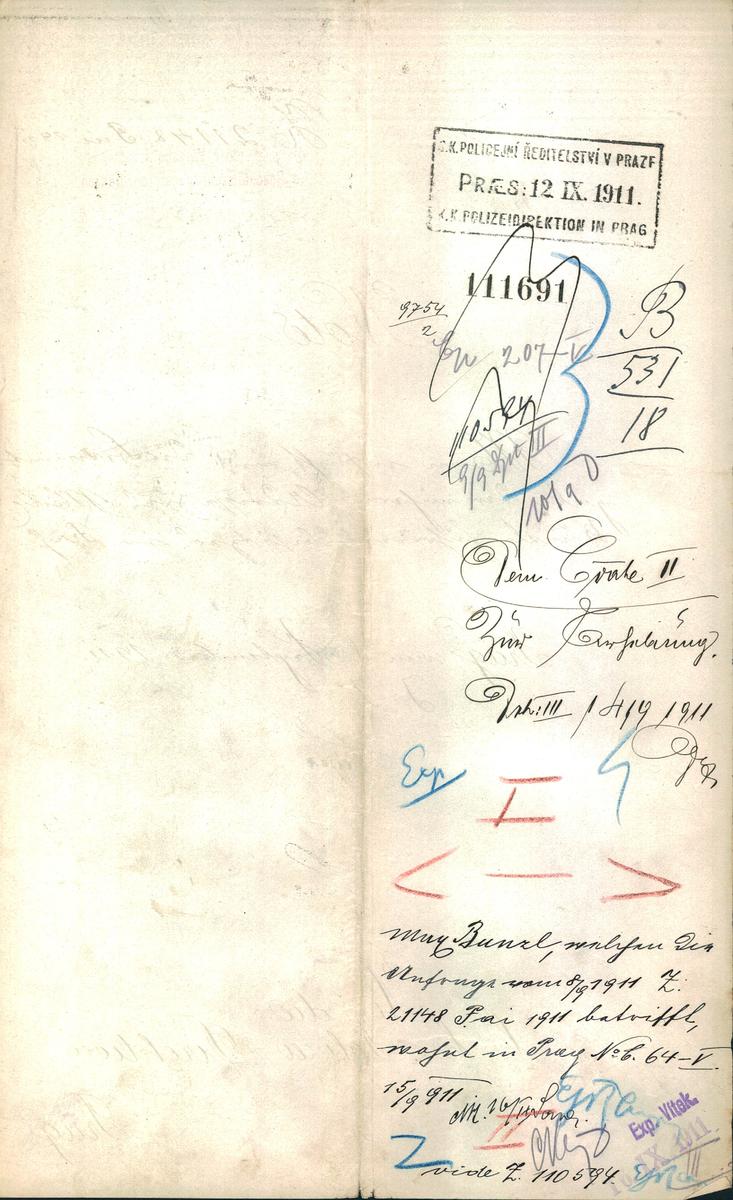 C.K. POLICEJNÍ ŘEDITELSTVÍ V PRAZE
PRÆS: 12 IX. 1911.
K.K. POLIZEIDIREKTION IN PRAG
111691
9754
2
B
531
18
207-V
110594
9/9 III
10/9
Dem II
Zur Erhebung.
III 14/9 1911
Exp
I
Max Bunzl, welchen die
Anfrage vom 8/9 1911 Z:
21148 Pai 1911 betrifft,
wohnt in Prag No C. 64-V.
15/9 911
II
Exp. Vitak.
IX. 1911
III
vide Z. 110594.